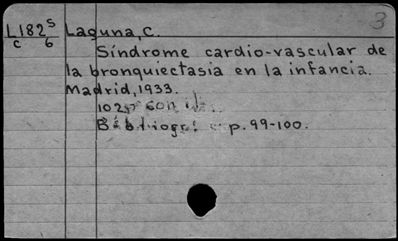 3
L182 S Laguna, C.
c 6 Síndrome cardio-vascular de
la bronquiectasia en la infancia.
Madrid, 1933.
102p
p. 99-100.